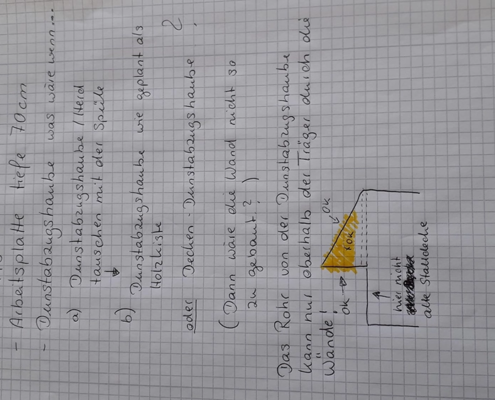 - Arbeitsplatte tiefe 70cm
- Dunstabzugshaube was wäre wenn...
a) Dunstabzugshaube / Herd
tauschen mit der Spüle
b) Dunstabzugshaube wie geplant als
Holzkiste
oder Decken-Dunstabzugshaube ?
(Dann wäre die Wand nicht so
zu gebaut?)
Das Rohr von der Dunstabzugshaube
kann nur oberhalb der Träger durch die
Wände!
OK
OK
OK
hier nicht
alte Stalldecke